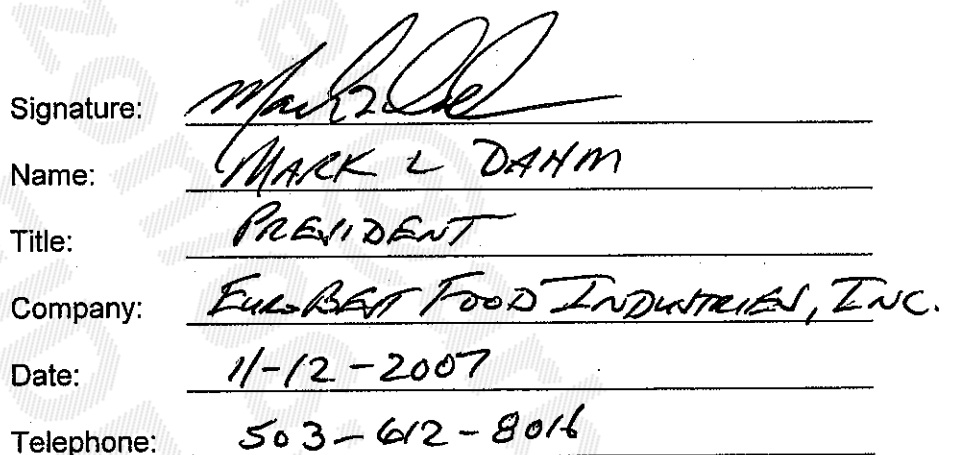 Signature: Mark L Dahm
Name: MARK L DAHM
Title: PRESIDENT
Company: EUROBEST FOOD INDUSTRIES, INC.
Date: 11-12-2007
Telephone: 503-612-8016